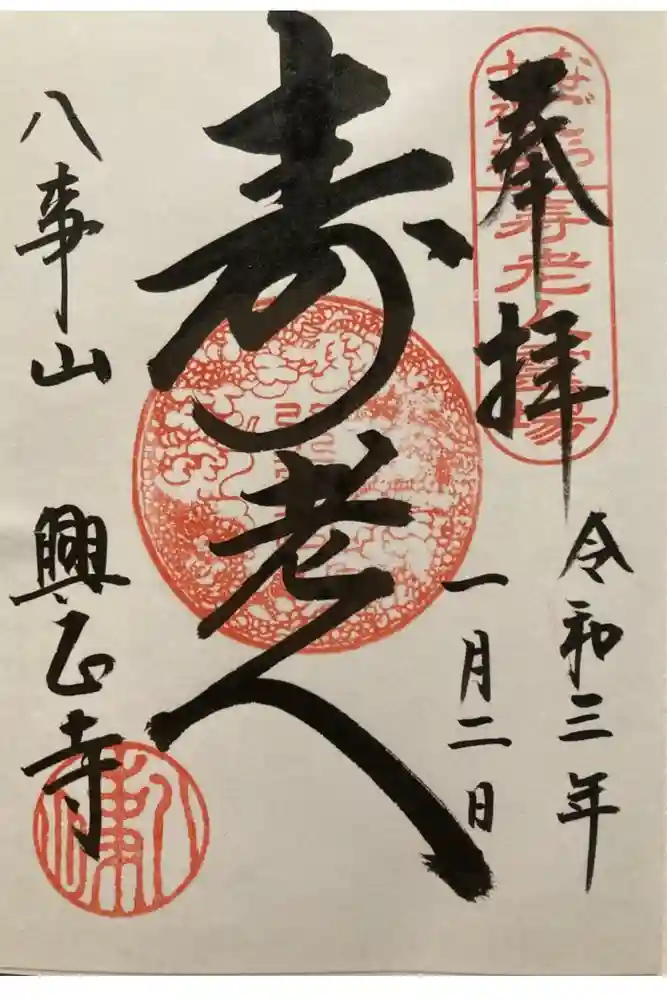 奉拝
なごや
十福神
寿老人霊場
令和三年
一月二日
寿老人
八事山
興正寺
八事山